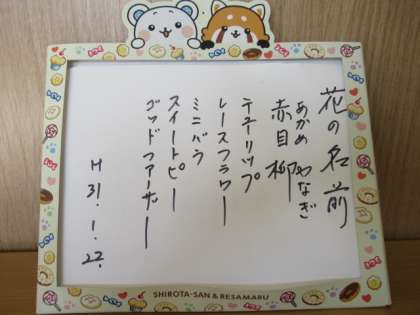 花の名前
あかめ やなぎ
赤目柳
チューリップ
レースフラワー
ミニバラ
スイートピー
ゴッドファーザー
H31.1.22.
SHIROTA-SAN & RESAMARU